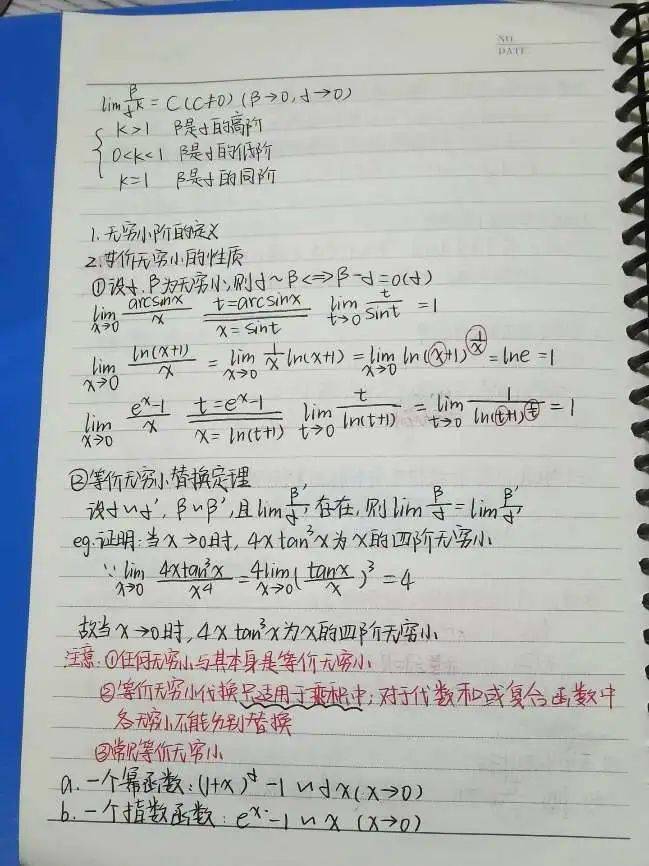 NO.
DATE
lim β/α^k = C (C≠0) (β→0, α→0)
k>1 β是α的高阶
0<k<1 β是α的低阶
k=1 β是α的同阶
1. 无穷小阶的定义
2. 等价无穷小的性质
①设α, β为无穷小, 则α~β<=>β-α=o(α)
lim x→0 arcsinx/x t=arcsinx x=sint lim t→0 t/sint =1
lim x→0 ln(x+1)/x = lim x→0 1/x ln(x+1) = lim x→0 ln(x+1)^(1/x) = lne =1
lim x→0 (e^x-1)/x t=e^x-1 x=ln(t+1) lim t→0 t/ln(t+1) = lim t→0 1/ln(t+1)^(1/t) =1
②等价无穷小替换定理
设α~α′, β~β′, 且lim β′/α′ 存在, 则lim β/α = lim β′/α′
eg.证明:当x→0时, 4xtan³x为x的四阶无穷小
∵ lim x→0 4xtan³x/x⁴ = 4lim x→0 (tanx/x)³ = 4
故当x→0时, 4xtan³x为x的四阶无穷小
注意:①任何无穷小与其本身是等价无穷小
②等价无穷小代换只适用于乘积中; 对于代数和或复合函数中
各无穷小不能分别替换
③常见等价无穷小
a. 一个幂函数: (1+x)^α -1 ~ αx (x→0)
b. 一个指数函数: e^x -1 ~ x (x→0)